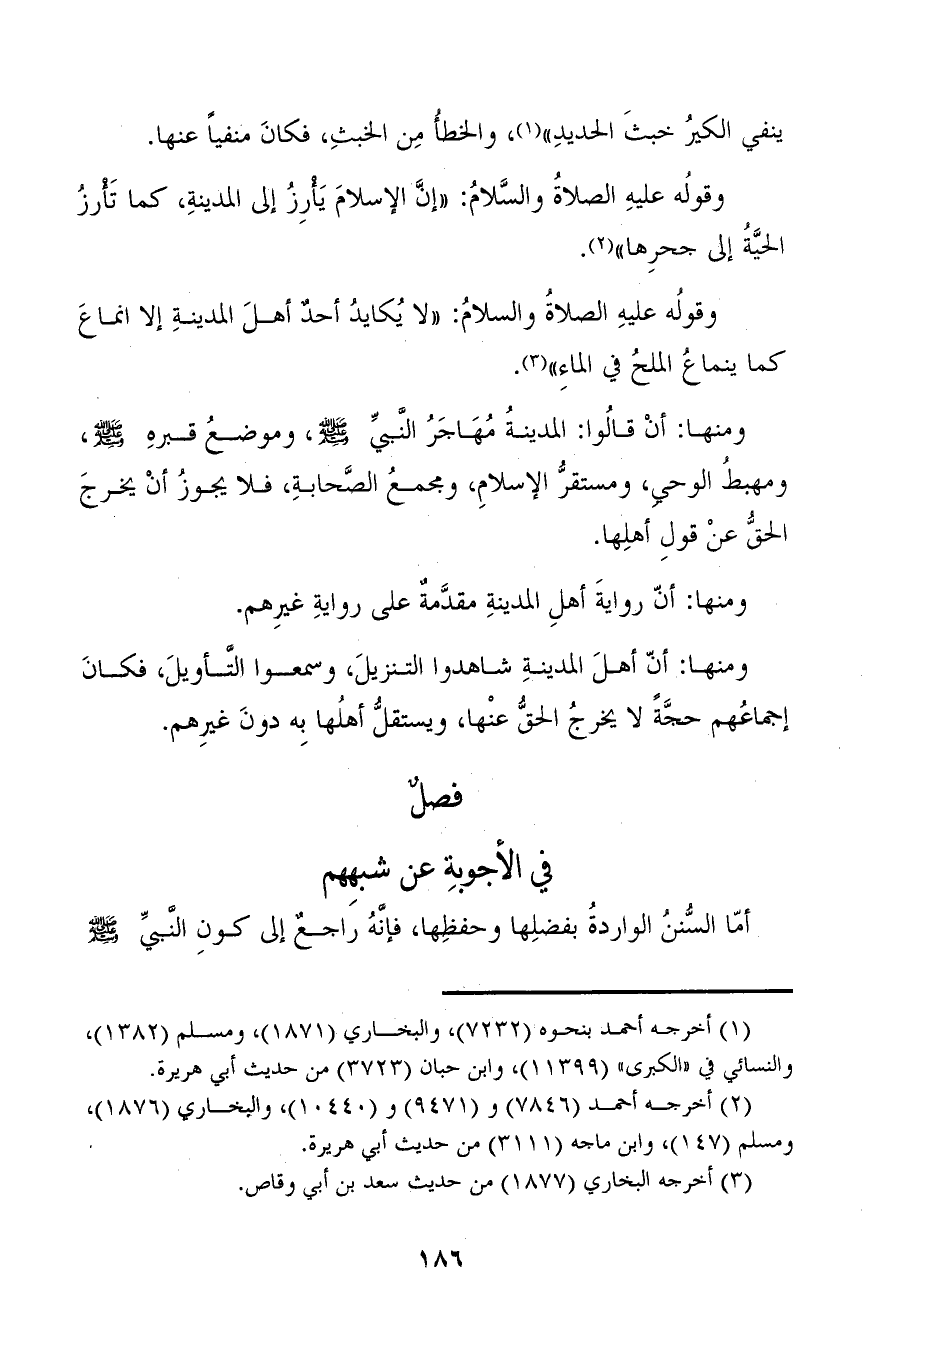 ينفي الكيرُ خبثَ الحديدِ»(١)، والخطأُ مِن الخبثِ، فكانَ منفياً عنها.
وقولُه عليهِ الصلاةُ والسَّلامُ: «إنَّ الإسلامَ يَأْرِزُ إلى المدينةِ، كما تَأْرِزُ
الحيَّةُ إلى جحرِها»(٢).
وقولُه عليهِ الصلاةُ والسلامُ: «لا يُكايدُ أحدٌ أهلَ المدينةِ إلا انماعَ
كما ينماعُ الملحُ في الماءِ»(٣).
ومنها: أنْ قالُوا: المدينةُ مُهَاجَرُ النَّبيِّ ﷺ، وموضعُ قبرِهِ ﷺ،
ومهبطُ الوحيِ، ومستقرُّ الإسلامِ، ومجمعُ الصَّحابةِ، فلا يجوزُ أنْ يخرجَ
الحقُّ عنْ قولِ أهلِها.
ومنها: أنّ روايةَ أهلِ المدينةِ مقدَّمةٌ على روايةِ غيرِهم.
ومنها: أنّ أهلَ المدينةِ شاهدوا التنزيلَ، وسمعوا التَّأويلَ، فكانَ
إجماعُهم حجَّةً لا يخرجُ الحقُّ عنْها، ويستقلُّ أهلُها بِه دونَ غيرِهم.
فصلٌ
في الأجوبةِ عن شبهِهم
أمّا السُّننُ الواردةُ بفضلِها وحفظِها، فإنَّهُ راجعٌ إلى كونِ النَّبيِّ ﷺ
(١) أخرجه أحمد بنحوه (٧٢٣٢)، والبخاري (١٨٧١)، ومسلم (١٣٨٢)،
والنسائي في «الكبرى» (١١٣٩٩)، وابن حبان (٣٧٢٣) من حديث أبي هريرة.
(٢) أخرجه أحمد (٧٨٤٦) و (٩٤٧١) و (١٠٤٤٠)، والبخاري (١٨٧٦)،
ومسلم (١٤٧)، وابن ماجه (٣١١١) من حديث أبي هريرة.
(٣) أخرجه البخاري (١٨٧٧) من حديث سعد بن أبي وقاص.
١٨٦